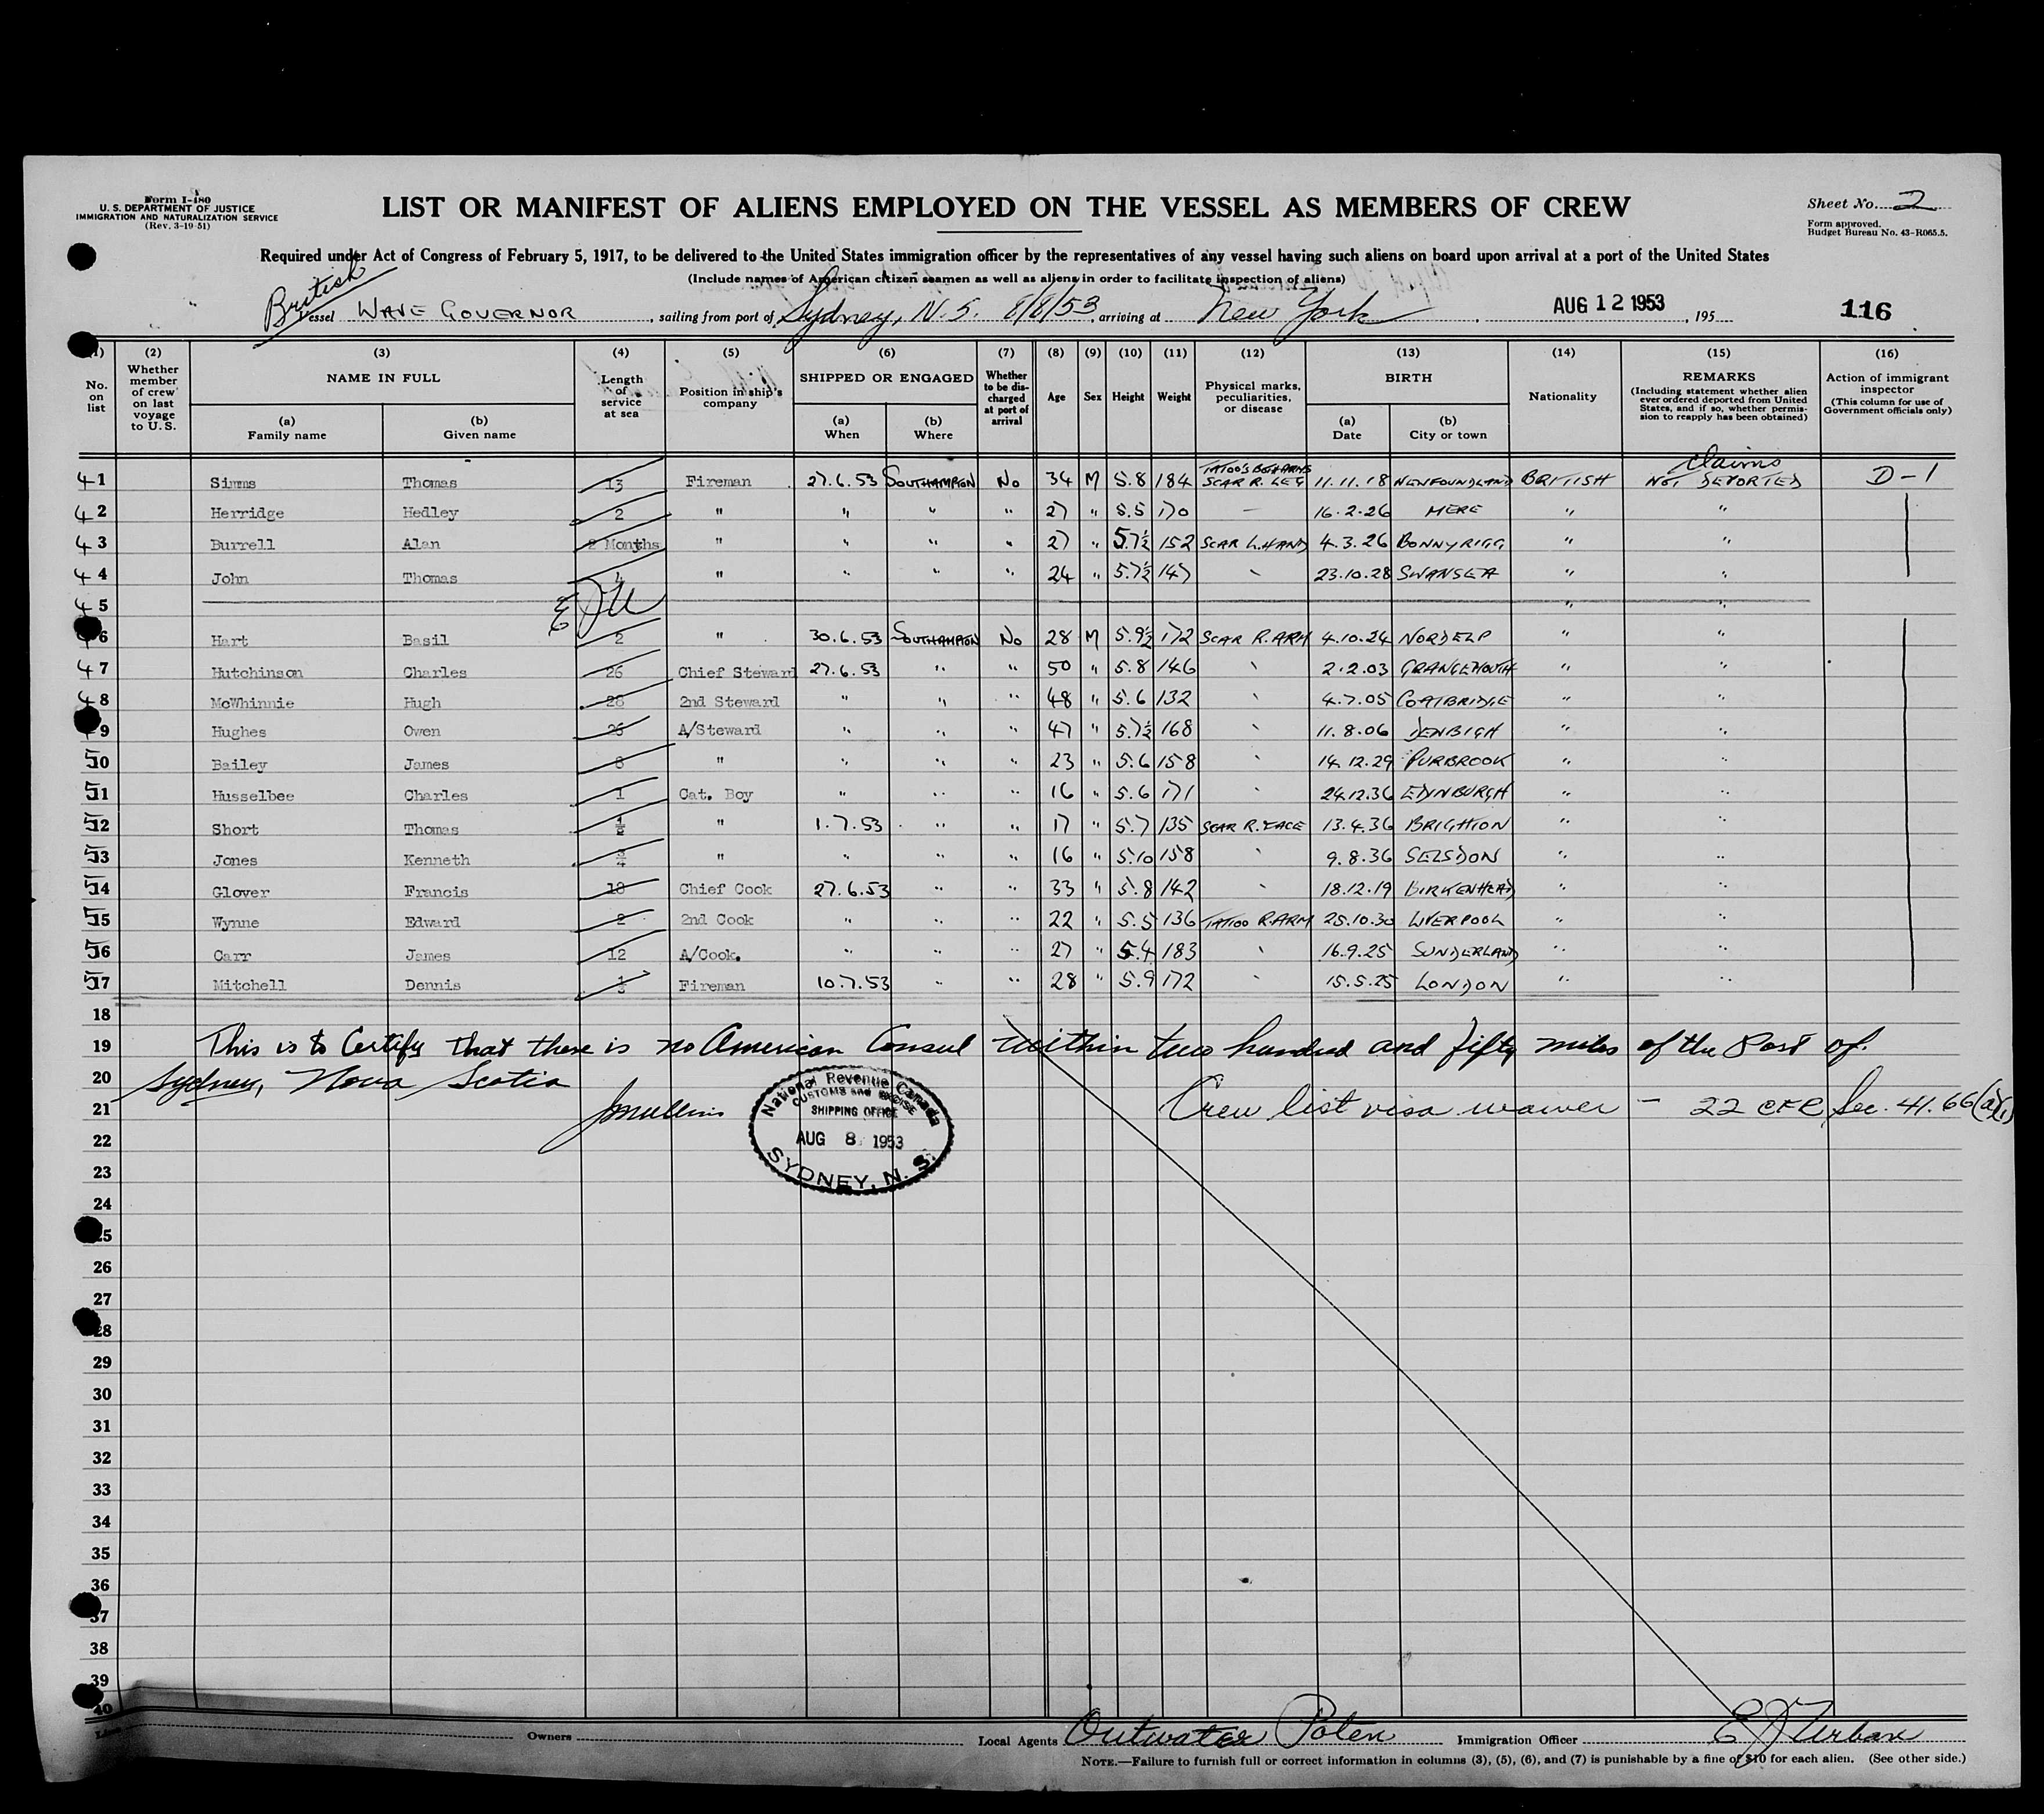 Form I-480
U. S. DEPARTMENT OF JUSTICE
IMMIGRATION AND NATURALIZATION SERVICE
(Rev. 3-19-51)
LIST OR MANIFEST OF ALIENS EMPLOYED ON THE VESSEL AS MEMBERS OF CREW
Sheet No. 2
Form approved.
Budget Bureau No. 43-R065.5.
Required under Act of Congress of February 5, 1917, to be delivered to the United States immigration officer by the representatives of any vessel having such aliens on board upon arrival at a port of the United States
(Include names of American citizen seamen as well as aliens in order to facilitate inspection of aliens)
British
Vessel WAVE GOVERNOR, sailing from port of Sydney, N.S. 8/8/53, arriving at New York, AUG 12 1953, 195 116
(1) (2) (3) (4) (5) (6) (7) (8) (9) (10) (11) (12) (13) (14) (15) (16)
No. on list
Whether member of crew on last voyage to U. S.
NAME IN FULL
(a) Family name
(b) Given name
Length of service at sea
Position in ship's company
SHIPPED OR ENGAGED
(a) When
(b) Where
Whether to be discharged at port of arrival
Age Sex Height Weight
Physical marks, peculiarities, or disease
BIRTH
(a) Date
(b) City or town
Nationality
REMARKS
(Including statement whether alien ever ordered deported from United States, and if so, whether permission to reapply has been obtained)
Action of immigrant inspector
(This column for use of Government officials only)
claims
TATOO'S BOTH ARMS
41 Simms Thomas 13 Fireman 27.6.53 SOUTHAMPTON No 34 M 5.8 184 SCAR R. LEG 11.11.18 NEWFOUNDLAND BRITISH NOT DEPORTED D-1
42 Herridge Hedley 2 " " " " 27 " 5.5 170 - 16.2.26 MERE " "
43 Burrell Alan 2 Months " " " " 27 " 5.7½ 152 SCAR L.HAND 4.3.26 BONNYRIGG " "
44 John Thomas 4 " " " " 24 " 5.7½ 147 23.10.28 SWANSEA " "
45 " "
46 Hart Basil 2 " 30.6.53 SOUTHAMPTON No 28 M 5.9½ 172 SCAR R.ARM 4.10.24 NORDELP " "
47 Hutchinson Charles 26 Chief Steward 27.6.53 " " 50 " 5.8 146 2.2.03 GRANGEMOUTH " "
48 McWhinnie Hugh 28 2nd Steward " " " 48 " 5.6 132 4.7.05 COATBRIDGE " "
49 Hughes Owen 25 A/Steward " " " 47 " 5.7½ 168 11.8.06 DENBIGH " "
50 Bailey James 8 " " " " 23 " 5.6 158 14.12.29 PURBROOK " "
51 Husselbee Charles 1 Cat. Boy " " " 16 " 5.6 171 24.12.36 EDINBURGH " "
52 Short Thomas ½ " 1.7.53 " " 17 " 5.7 135 SCAR R.FACE 13.4.36 BRIGHTON " "
53 Jones Kenneth ¾ " " " " 16 " 5.10 158 9.8.36 SELSDON " "
54 Glover Francis 18 Chief Cook 27.6.53 " " 33 " 5.8 142 18.12.19 BIRKENHEAD " "
55 Wynne Edward 2 2nd Cook " " " 22 " 5.5 136 TATOO R.ARM 25.10.30 LIVERPOOL " "
56 Carr James 12 A/Cook. " " " 27 " 5.4 183 16.9.25 SUNDERLAND " "
57 Mitchell Dennis Fireman 10.7.53 " " 28 " 5.9 172 15.5.25 LONDON " "
18
19 This is to Certify that there is no American Consul within two hundred and fifty miles of the Port of
20 Sydney, Nova Scotia
21 Crew list visa waiver - 22 CFR Sec. 41.66
National Revenue Canada
CUSTOMS and EXCISE
SHIPPING OFFICE
AUG 8 1953
SYDNEY, N. S.
22
23
24
25
26
27
28
29
30
31
32
33
34
35
36
37
38
39
40
Owners
Local Agents Outwater Polen
Immigration Officer E J Urban
NOTE.—Failure to furnish full or correct information in columns (3), (5), (6), and (7) is punishable by a fine of $10 for each alien. (See other side.)